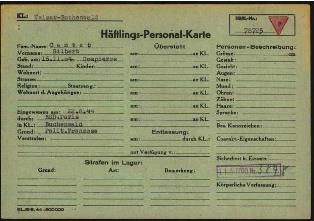 KL: Weimar-Buchenwald
Häftl.-Nr.:
78785
Häftlings-Personal-Karte
Fam.-Name:
Vorname: Gilbert
Geb. am: 15.11.04
Stand: Kinder:
Wohnort:
Strasse:
Religion: Staatsang.:
Wohnort d. Angehörigen:
Eingewiesen am: 22.8.44
durch: Paris
in KL.: Buchenwald
Grund: Polit. Franzose
Vorstrafen:
Überstellt
am: an KL.:
am: an KL.:
am: an KL.:
am: an KL.:
am: an KL.:
am: an KL.:
Entlassung:
am: durch KL.:
mit Verfügung v.:
Personen-Beschreibung:
Grösse:
Gestalt:
Gesicht:
Augen:
Nase:
Mund:
Ohren:
Zähne:
Haare:
Sprache:
Bes. Kennzeichen:
Charakt.-Eigenschaften:
Sicherheit b. Einsatz:
Körperliche Verfassung:
Strafen im Lager:
Grund: Art: Bemerkung: